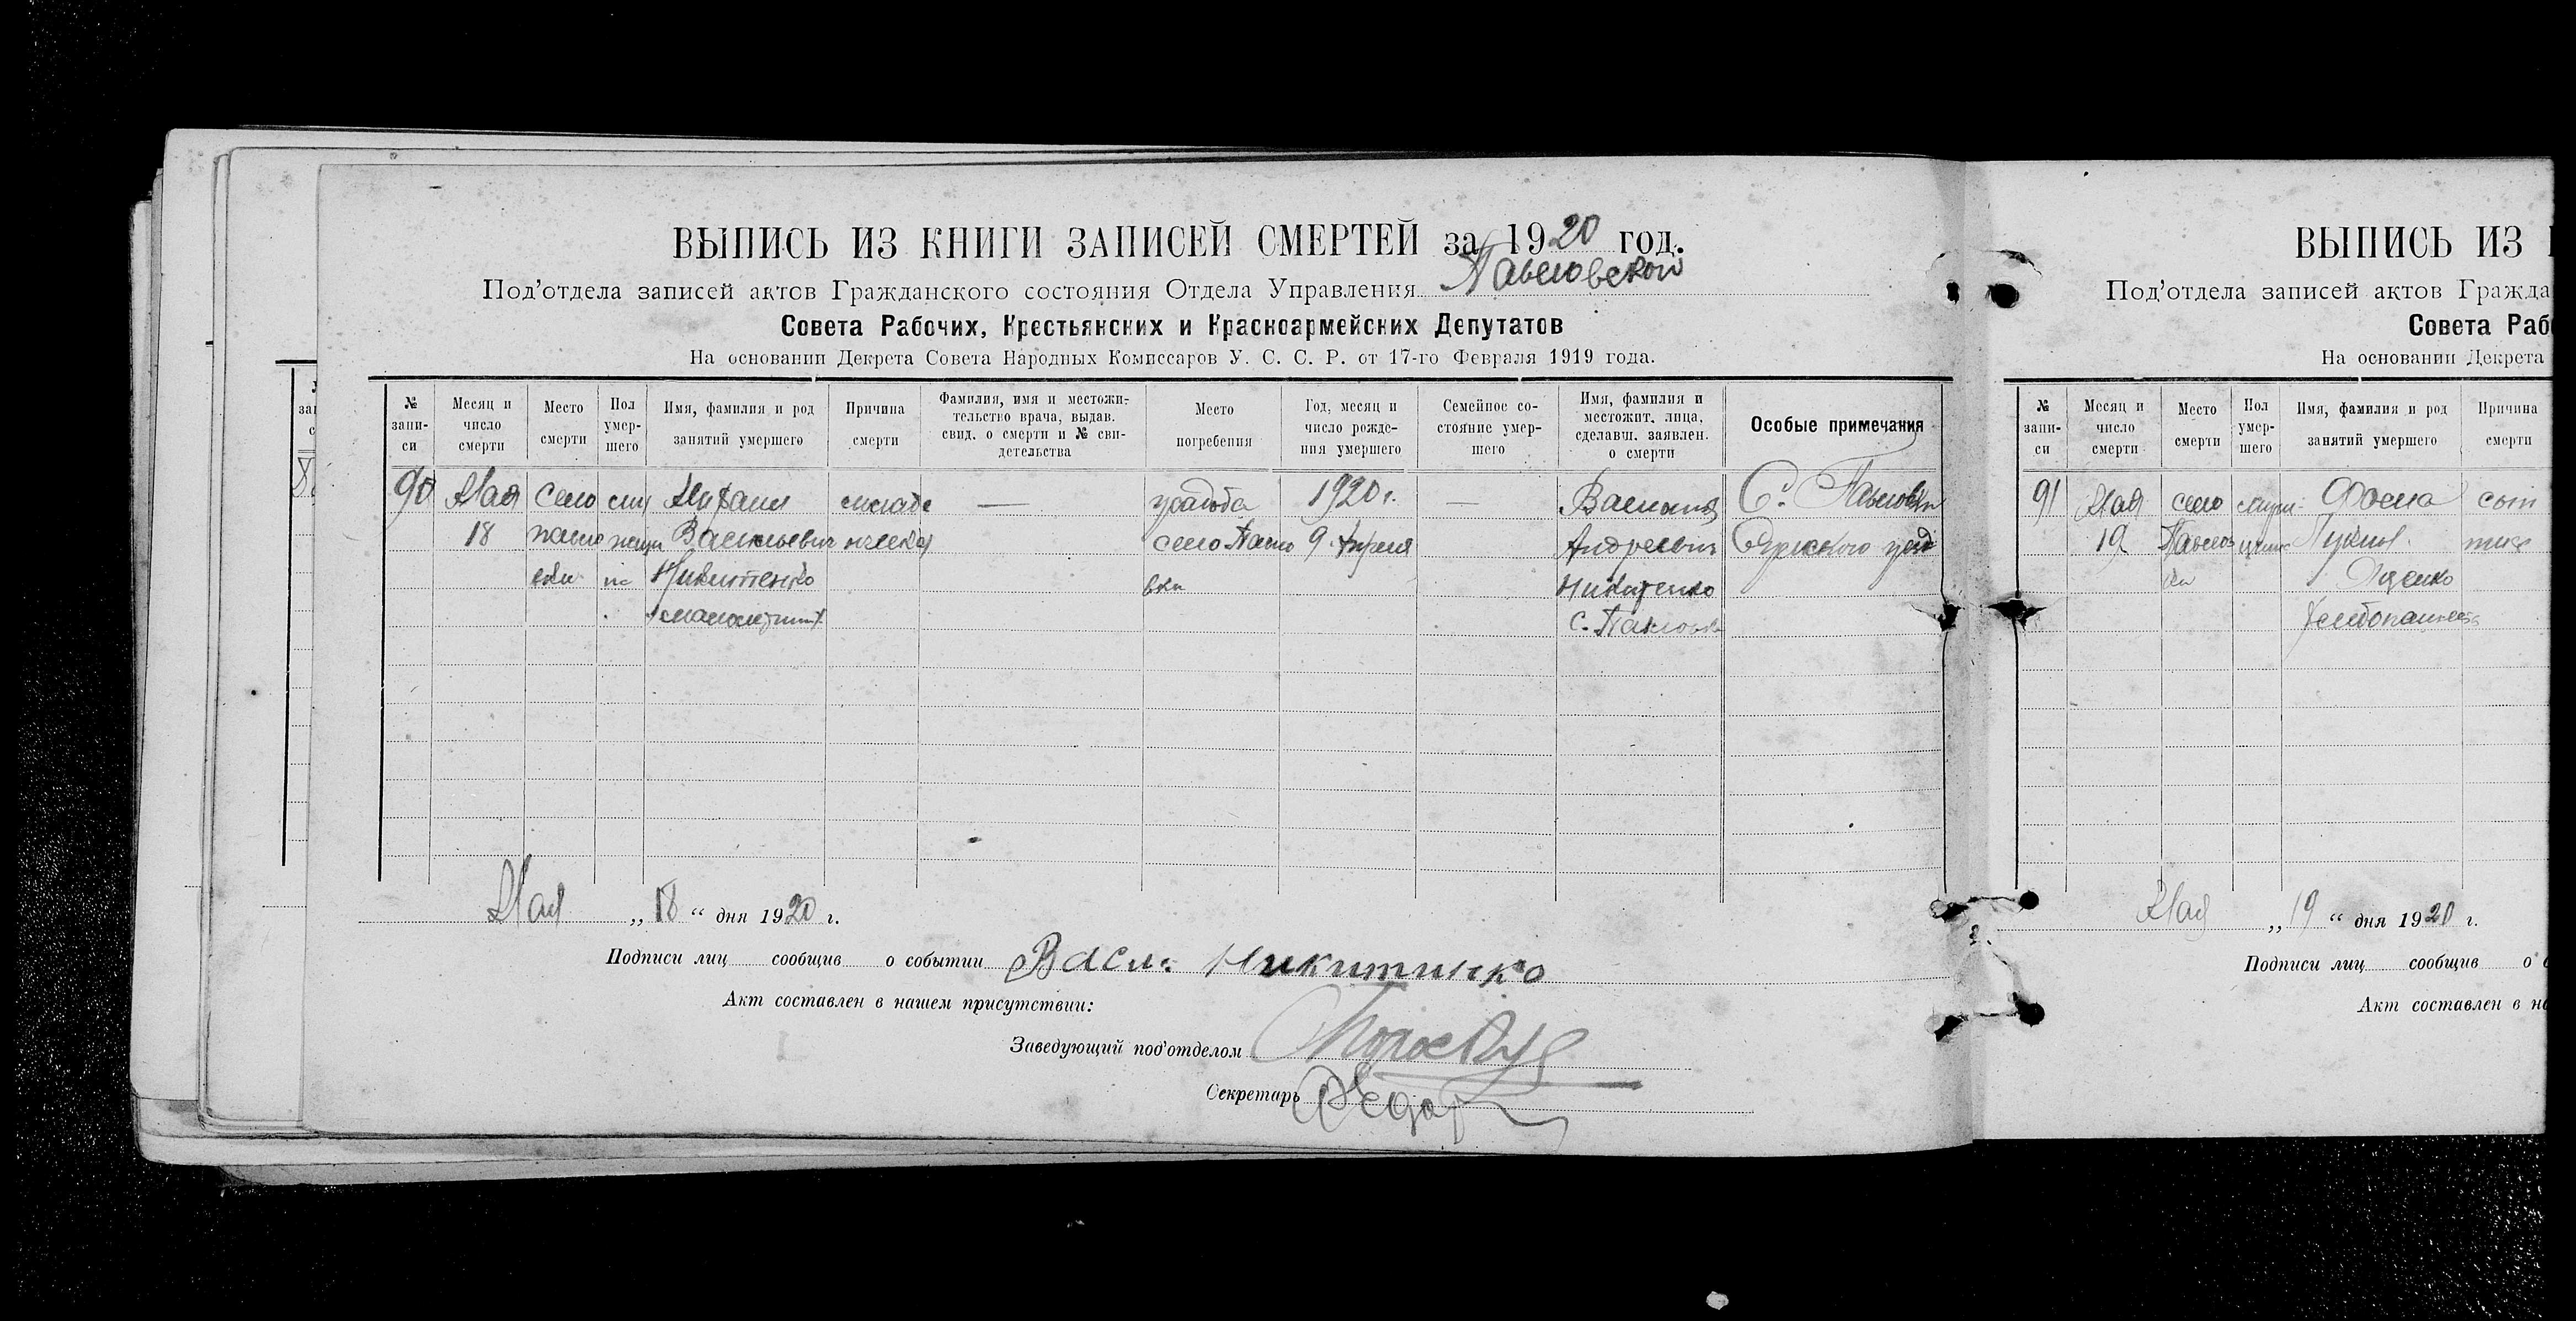 ВЫПИСЬ ИЗ КНИГИ ЗАПИСЕЙ СМЕРТЕЙ за 1920 год.
Под'отдела записей актов Гражданского состояния Отдела Управления Павловской
Совета Рабочих, Крестьянских и Красноармейских Депутатов
На основании Декрета Совета Народных Комиссаров У. С. С. Р. от 17-го Февраля 1919 года.
№ запи- си
Месяц и число смерти
Место смерти
Пол умер- шего
Имя, фамилия и род занятий умершего
Причина смерти
Фамилия, имя и местожи- тельство врача, выдав. свид. о смерти и № сви- детельства
Место погребения
Год, месяц и число рожде- ния умершего
Семейное со- стояние умер- шего
Имя, фамилия и местожит. лица, сделавш. заявлен. о смерти
Особые примечания
90 Мая Село — усадьба 1920 г. — С. Павловки
18 Васильевич село Павло 9 Апреля Андреевич
вки Никитенко вки Никитенко
с. Павловка
Мая „18“ дня 1920 г.
Подписи лиц сообщив о событии Васил Никитинко
Акт составлен в нашем присутствии:
Заведующий под'отделом
Секретарь
ВЫПИСЬ ИЗ
Под'отдела записей актов Гражда
Совета Раб
На основании Декрета
№ запи- си
Месяц и число смерти
Место смерти
Пол умер- шего
Имя, фамилия и род занятий умершего
Причина смерти
91 Мая село Фома
19 Павлов
ки
Мая „19“ дня 1920 г.
Подписи лиц сообщив о
Акт составлен в на